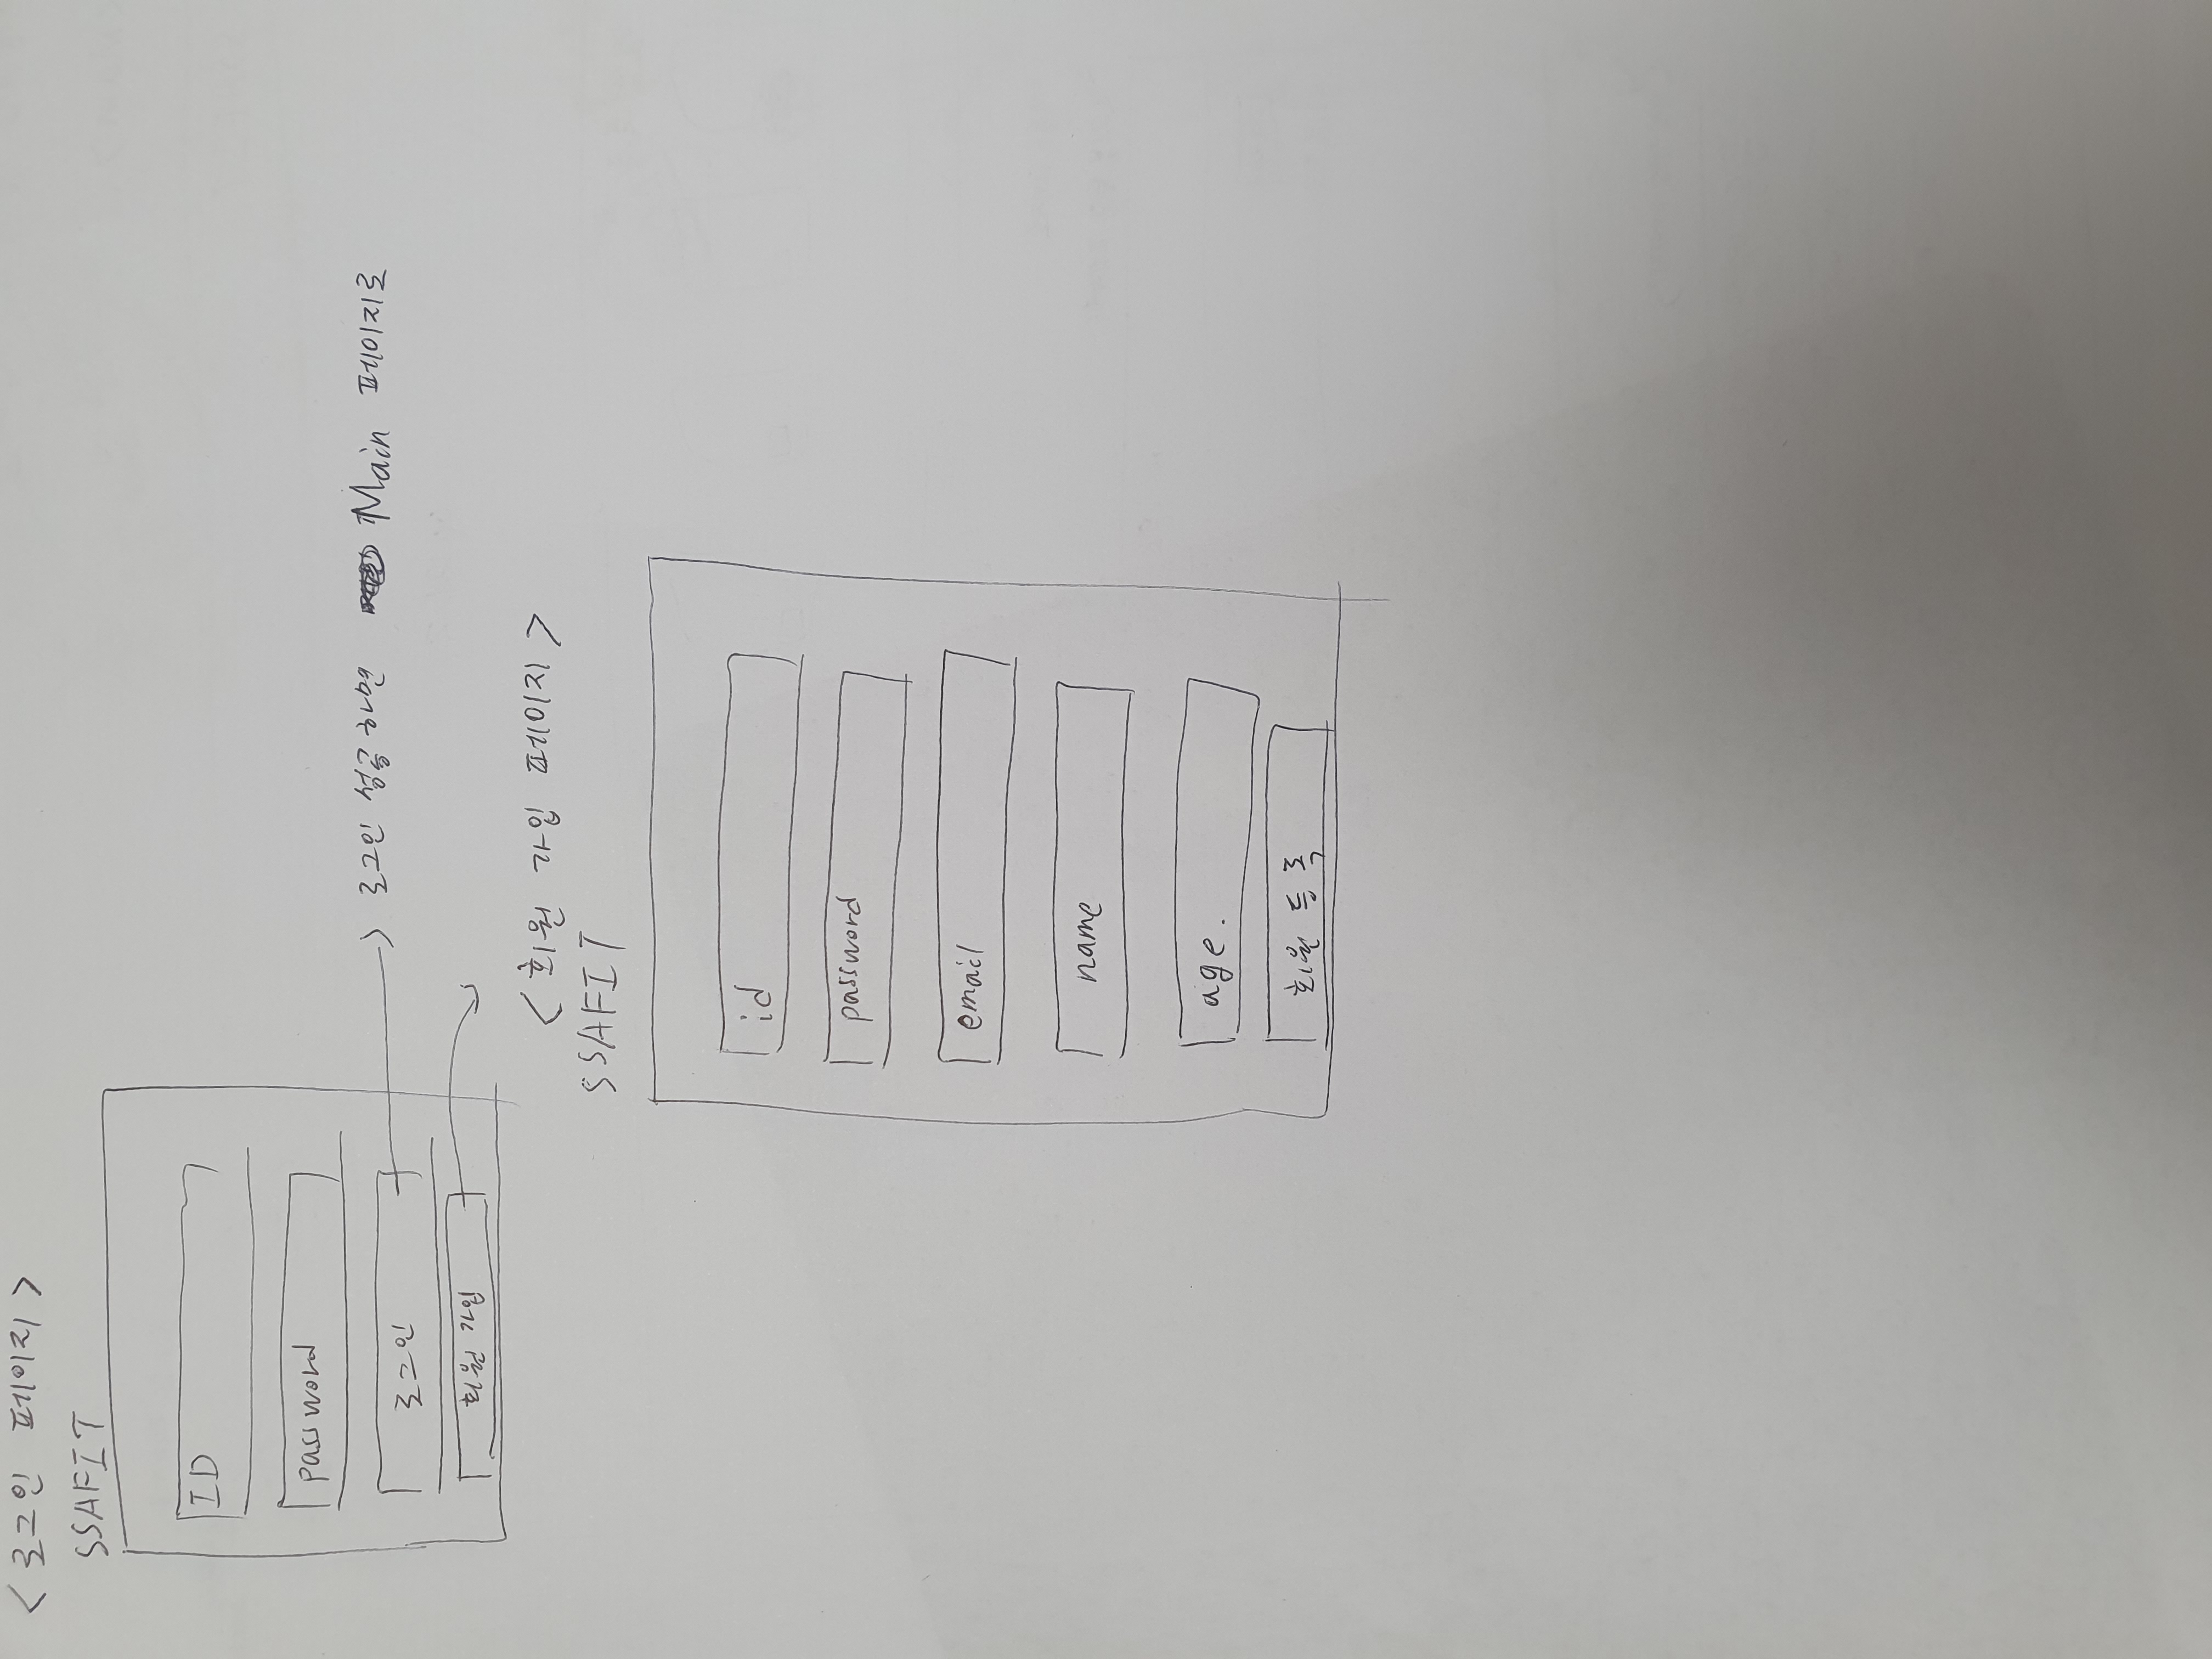 < 로그인 페이지 >
SSAFIT
ID
password
로그인
로그인 성공하면 Main 페이지로
회원 가입
< 회원 가입 페이지 >
SSAFIT
id
password
email
name
age.
회원 등록